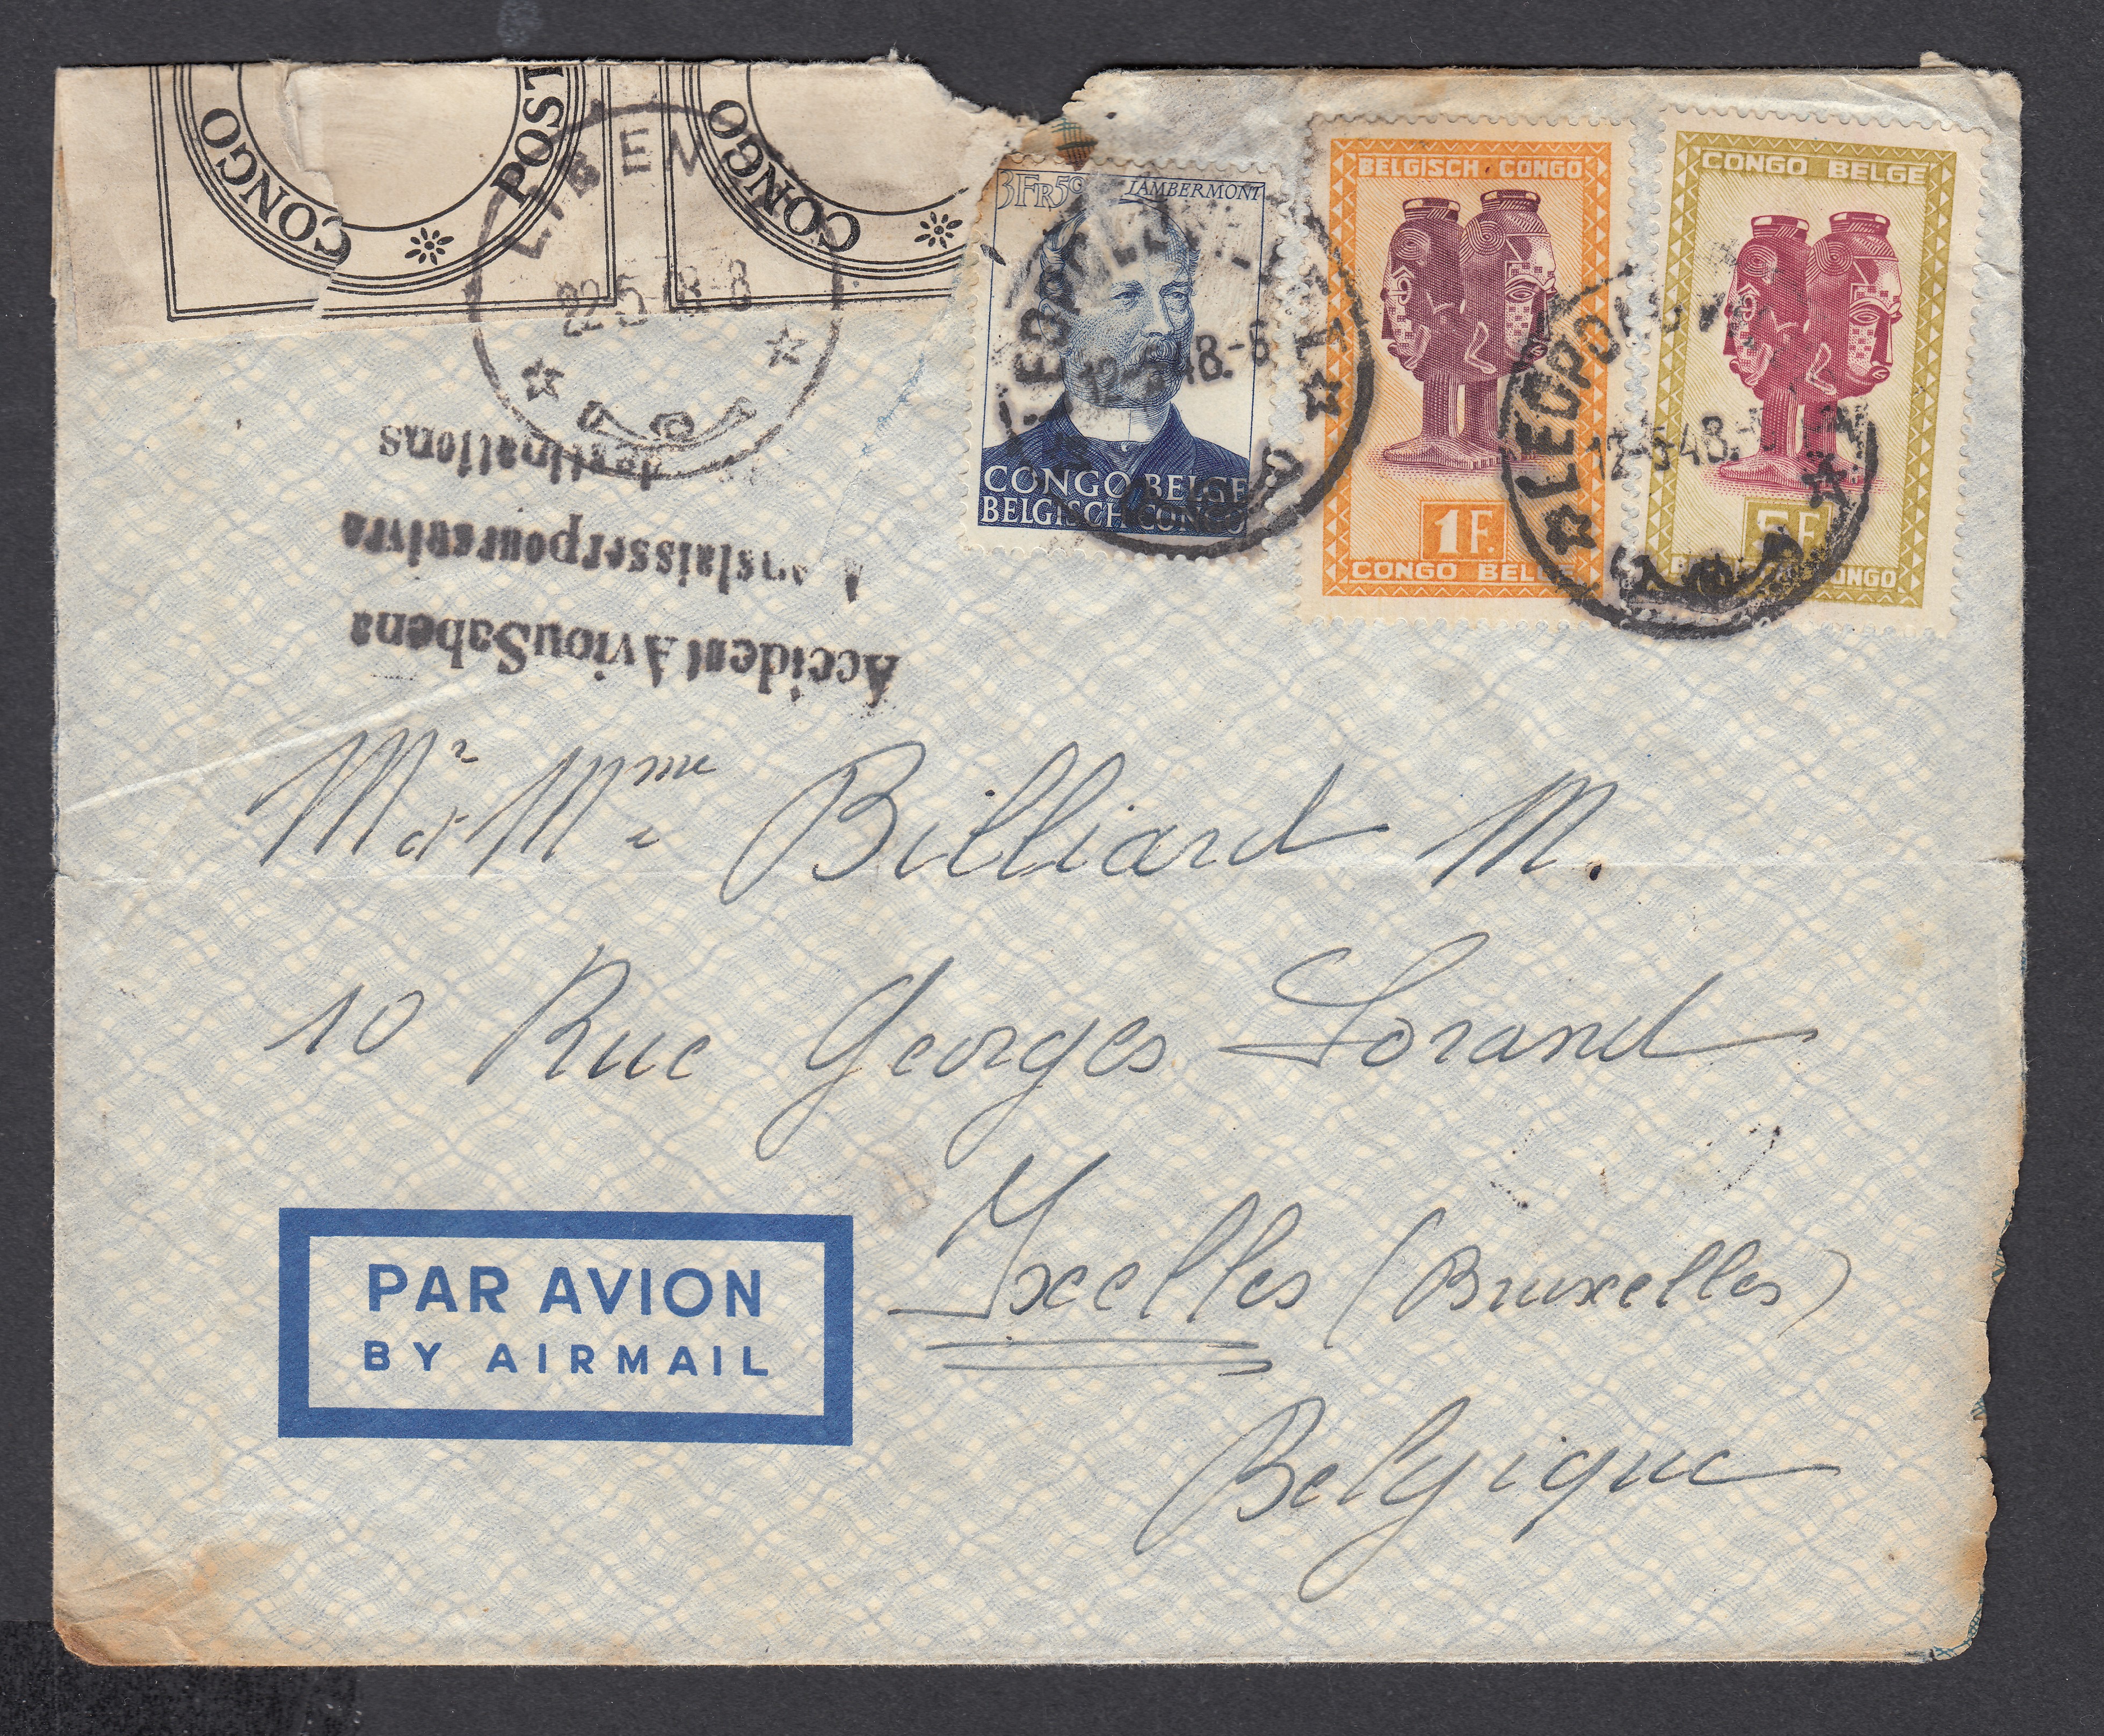 CONGO
POST
CONGO
CONGO
CONGO
LIBENGE
22-5-48-8
3FR50 LAMBERMONT
CONGO BELGE
BELGISCH CONGO
LEOPOLDVILLE 1
12-5-48.-6
BELGISCH CONGO
1F.
CONGO BELGE
CONGO BELGE
5F.
BELGISCH CONGO
LEOPOLDVILLE
12-5-48.
Accident Aviou Sabena
laisser poursuivre
destinations
Mr et Mme Billiard M.
10 Rue Georges Lorand
Ixelles (Bruxelles)
Belgique
PAR AVION
BY AIRMAIL